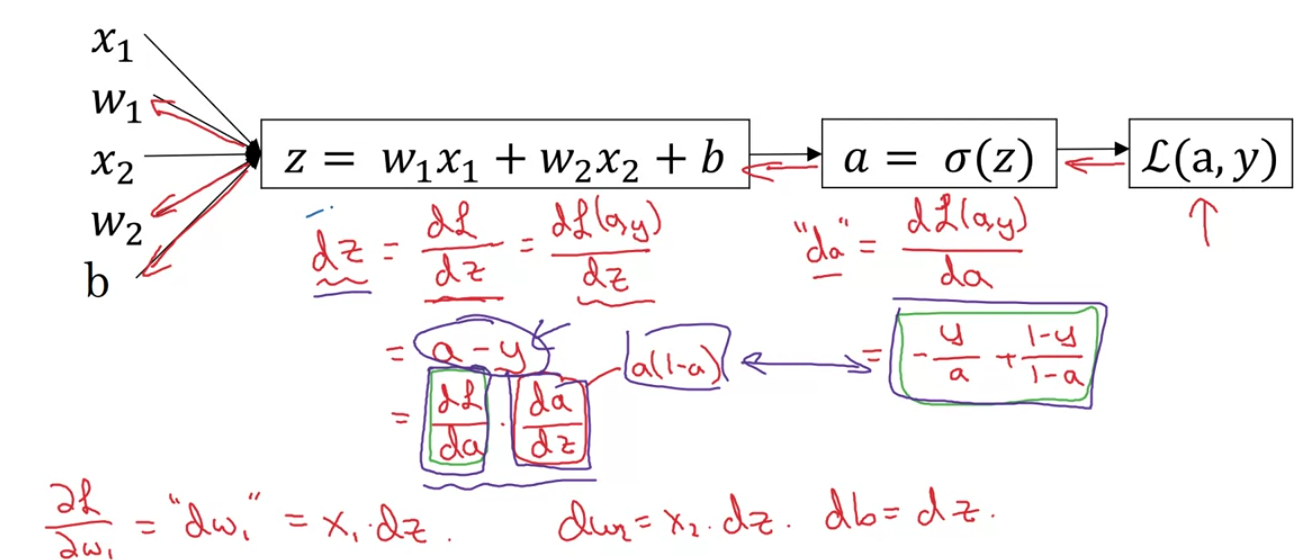 x₁
w₁
x₂
w₂
b
z = w₁x₁ + w₂x₂ + b
a = σ(z)
ℒ(a, y)
dz = dℒ/dz = dℒ(a,y)/dz
"da" = dℒ(a,y)/da
= a - y
a(1-a)
= -y/a + (1-y)/(1-a)
= dℒ/da · da/dz
∂ℒ/∂w₁ = "dw₁" = x₁·dz.
dw₂ = x₂·dz.
db = dz.